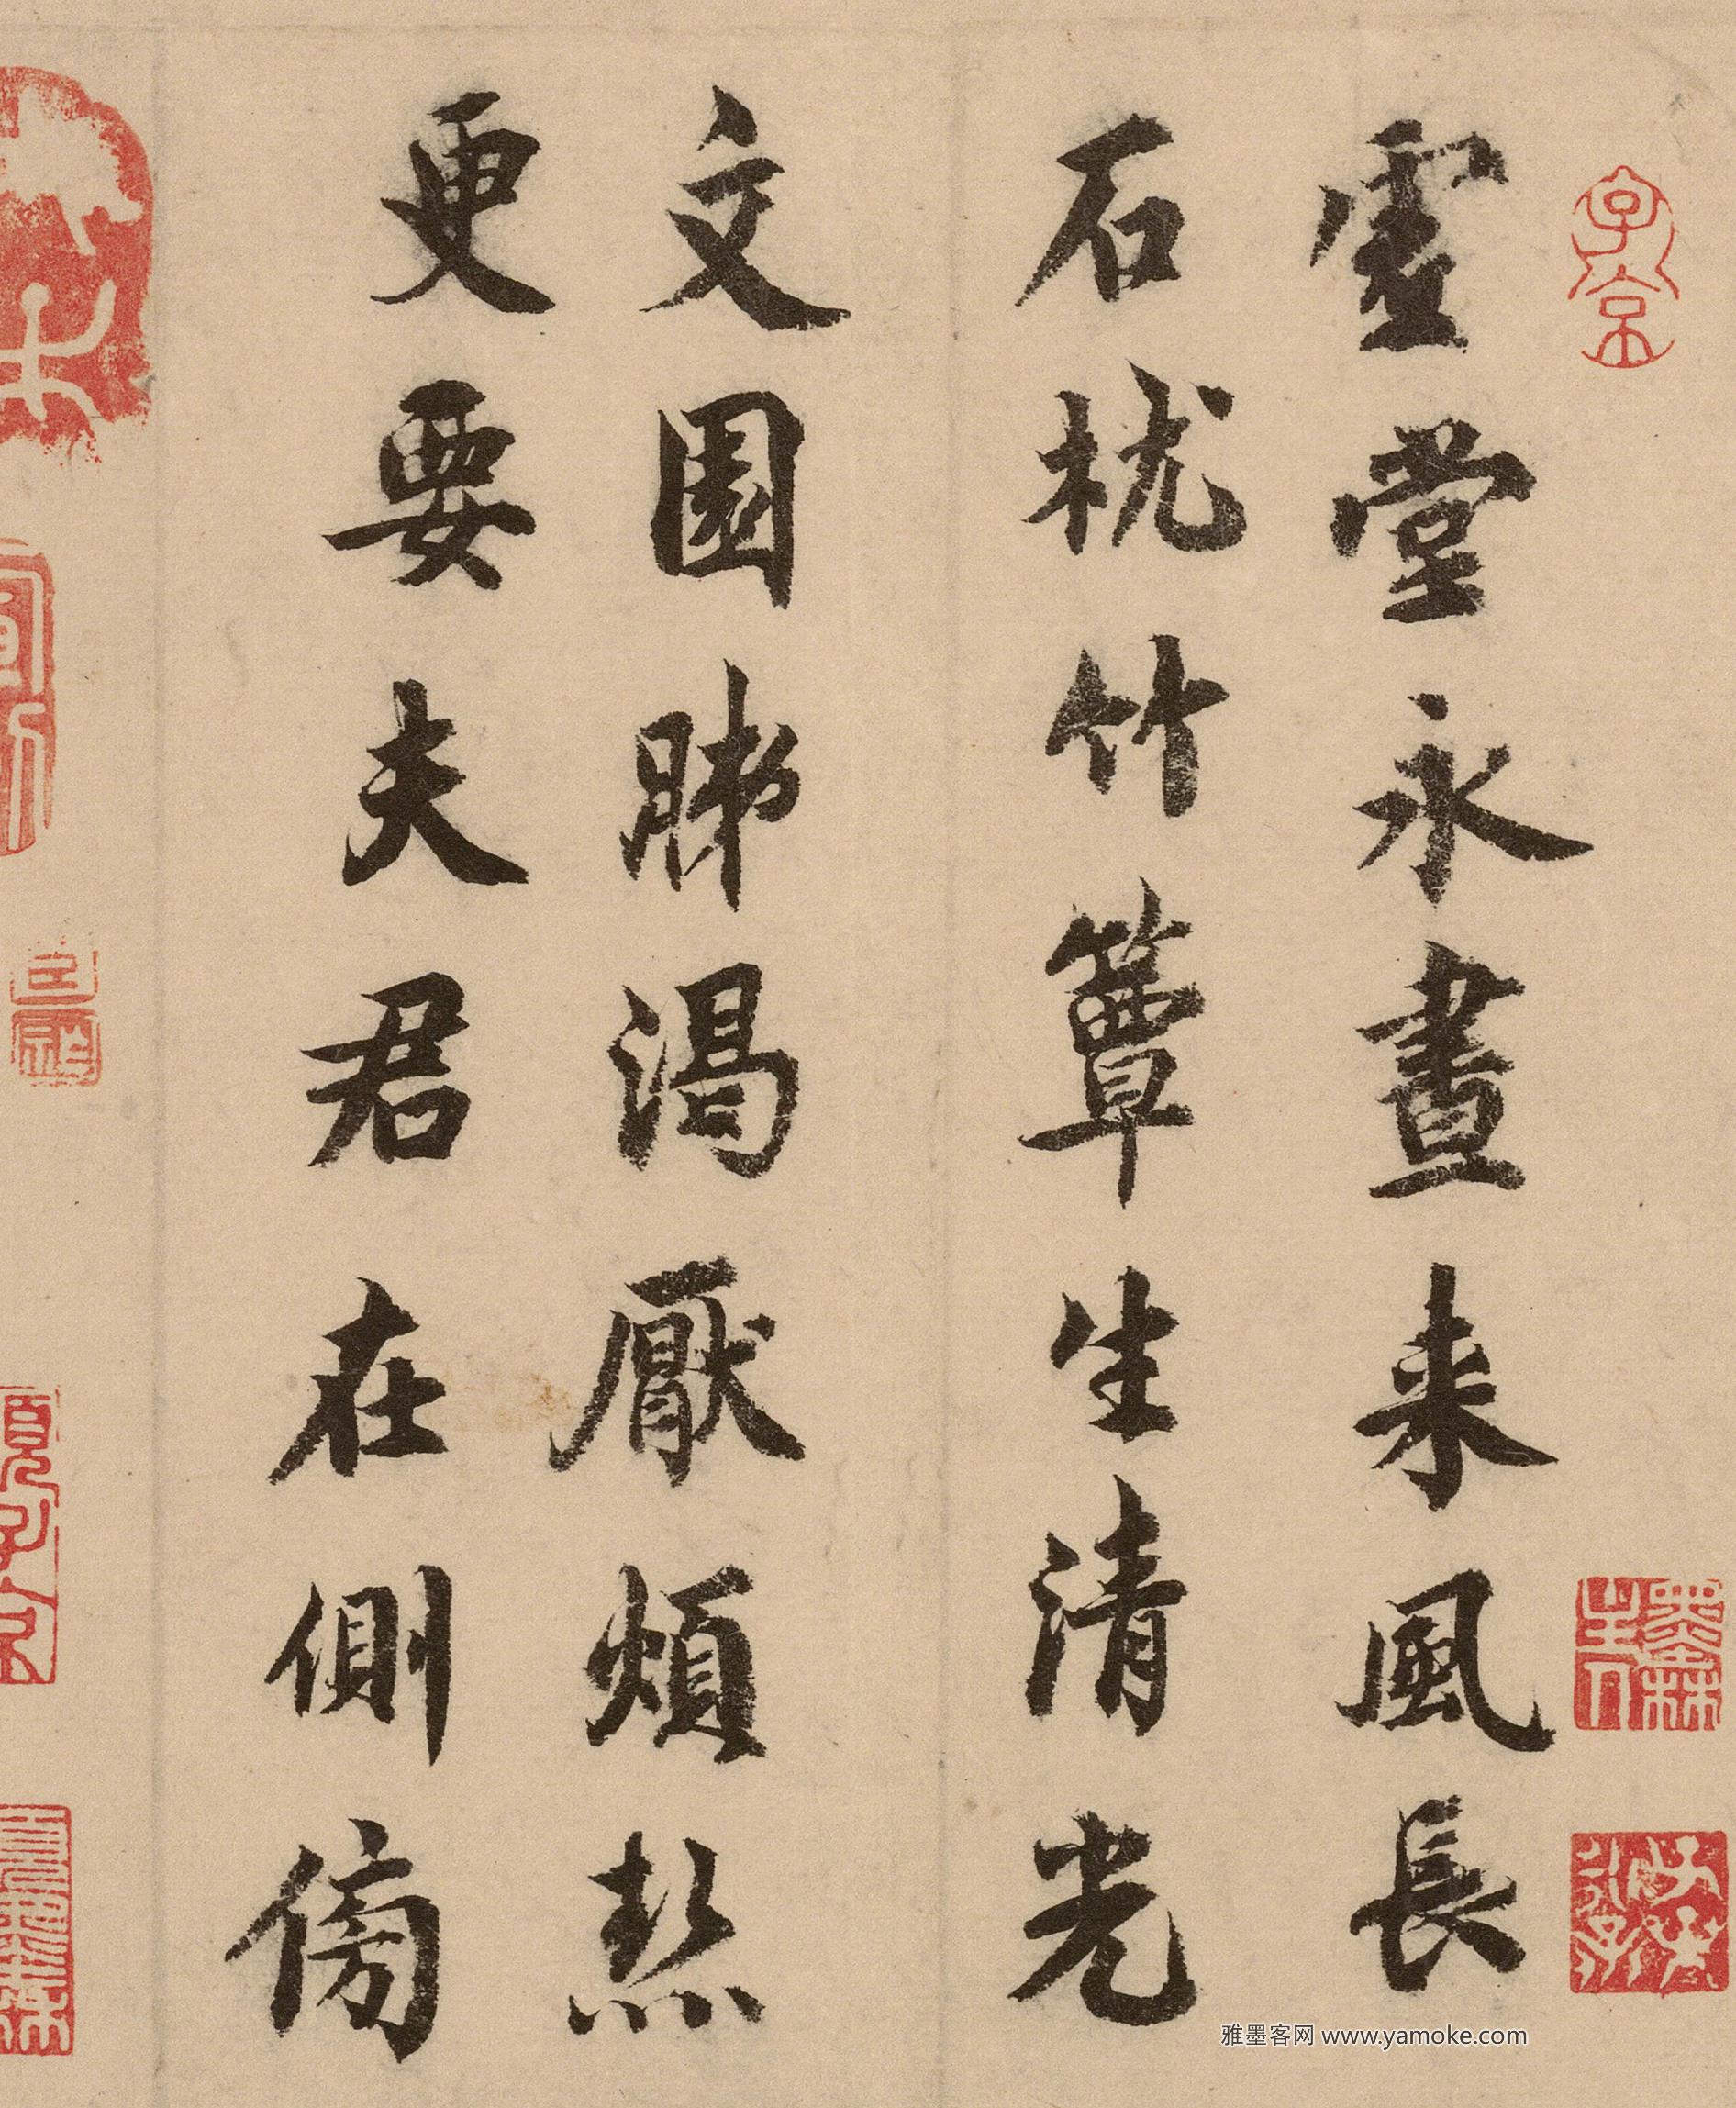 虛堂永晝来風長
石枕竹簟生清光
文園肺渴厭煩熱
更要夫君在側傍
子京
墨林
雅墨客网 www.yamoke.com